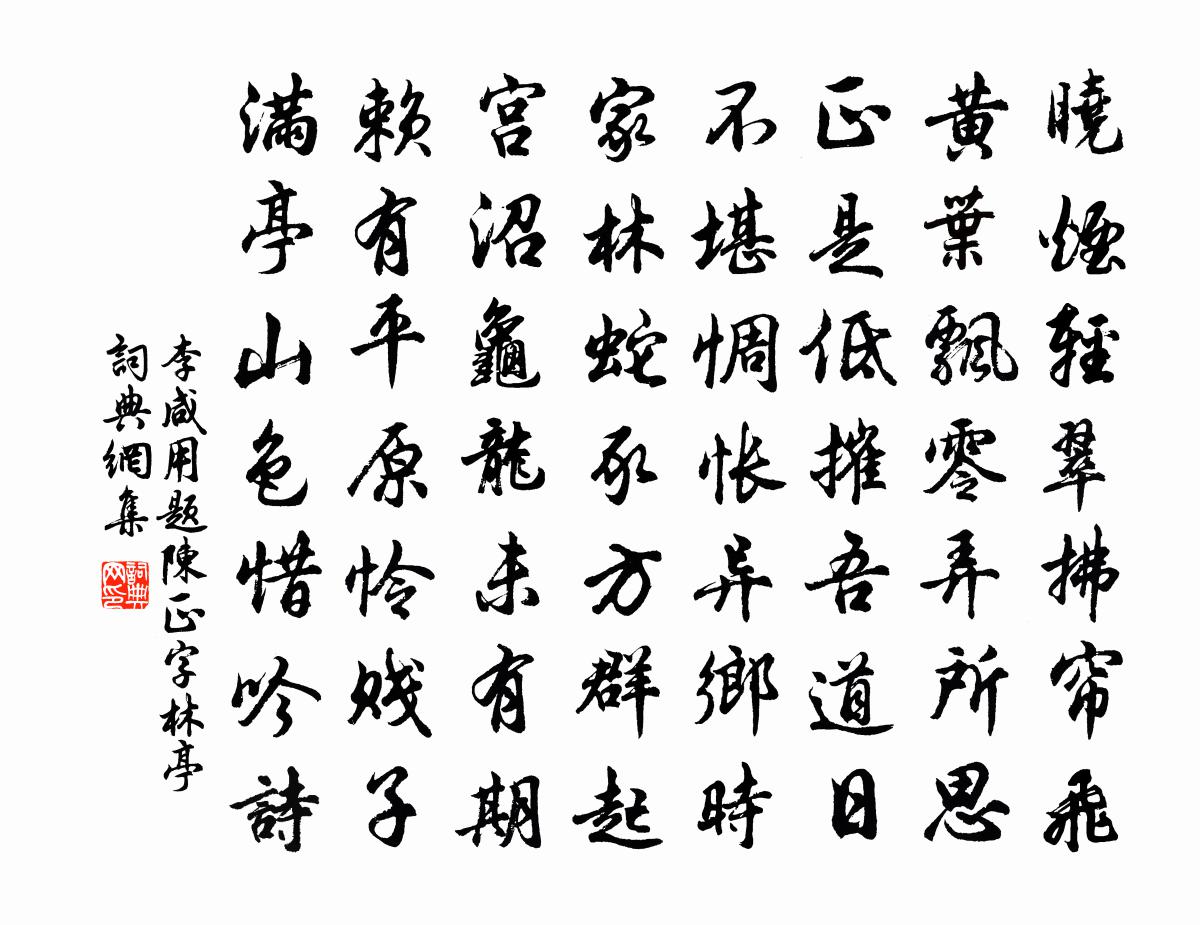 曉煙輕翠拂帘飛
黄葉飄零弄所思
正是低摧吾道日
不堪惆怅异鄉時
家林蛇豕方群起
宫沼龜龍未有期
赖有平原怜贱子
滿亭山色惜吟詩
李咸用题陳正字林亭
詞典網集
詞典
网印